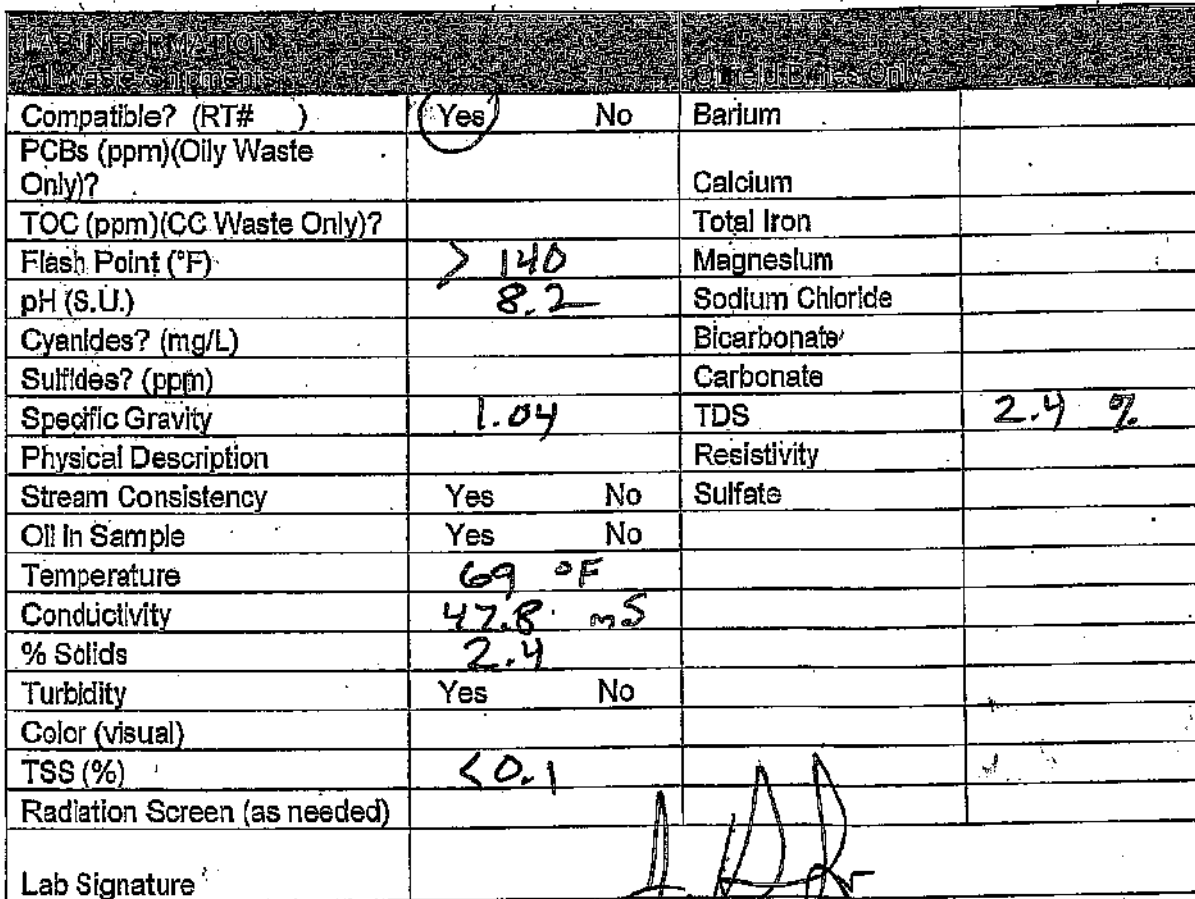 LAB INFORMATION
All Waste Shipments Oilfield Brines Only
Compatible? (RT# ) Yes No Barium
PCBs (ppm)(Oily Waste
Only)? Calcium
TOC (ppm)(CC Waste Only)? Total Iron
Flash Point (°F) > 140 Magnesium
pH (S.U.) 8.2 Sodium Chloride
Cyanides? (mg/L) Bicarbonate
Sulfides? (ppm) Carbonate
Specific Gravity 1.04 TDS 2.4 %
Physical Description Resistivity
Stream Consistency Yes No Sulfate
Oil in Sample Yes No
Temperature 69 °F
Conductivity 47.8 mS
% Solids 2.4
Turbidity Yes No
Color (visual)
TSS (%) <0.1
Radiation Screen (as needed)
Lab Signature